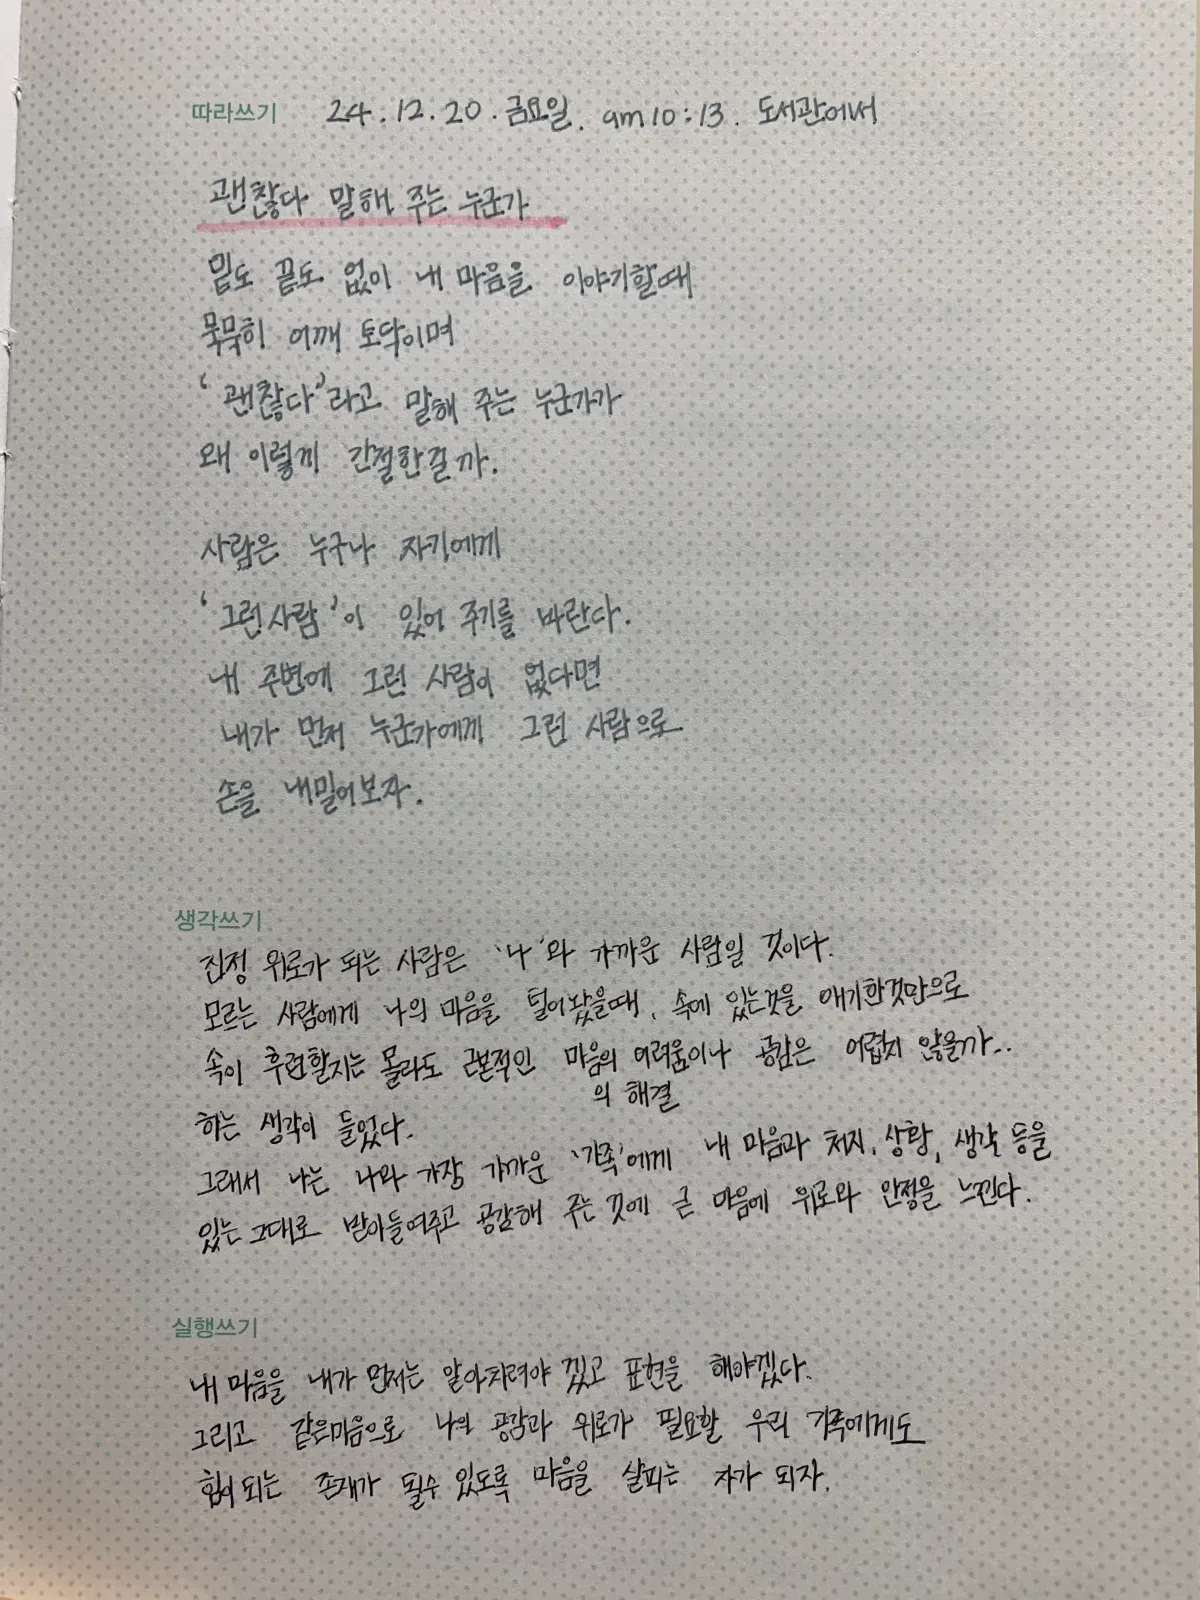 따라쓰기 24.12.20.금요일. am10:13. 도서관에서
괜찮다 말해 주는 누군가
밑도 끝도 없이 내 마음을 이야기할때
묵묵히 어깨 토닥이며
'괜찮다'라고 말해 주는 누군가가
왜 이렇게 간절한걸까.
사람은 누구나 자기에게
'그런사람'이 있어 주기를 바란다.
내 주변에 그런 사람이 없다면
내가 먼저 누군가에게 그런 사람으로
손을 내밀어보자.
생각쓰기
진정 위로가 되는 사람은 '나'와 가까운 사람일 것이다.
모르는 사람에게 나의 마음을 털어놨을때, 속에 있는것을 얘기한것만으로
속이 후련할지는 몰라도 근본적인 마음의 어려움이나 공감은 어렵지 않을까..
의 해결
하는 생각이 들었다.
그래서 나는 나와 가장 가까운 '가족'에게 내 마음과 처지, 상황, 생각 등을
있는 그대로 받아들여주고 공감해 주는 것에 큰 마음에 위로와 안정을 느낀다.
실행쓰기
내 마음을 내가 먼저는 알아차려야 겠고 표현을 해야겠다.
그리고 같은마음으로 나의 공감과 위로가 필요할 우리 가족에게도
힘이 되는 존재가 될수 있도록 마음을 살피는 자가 되자.